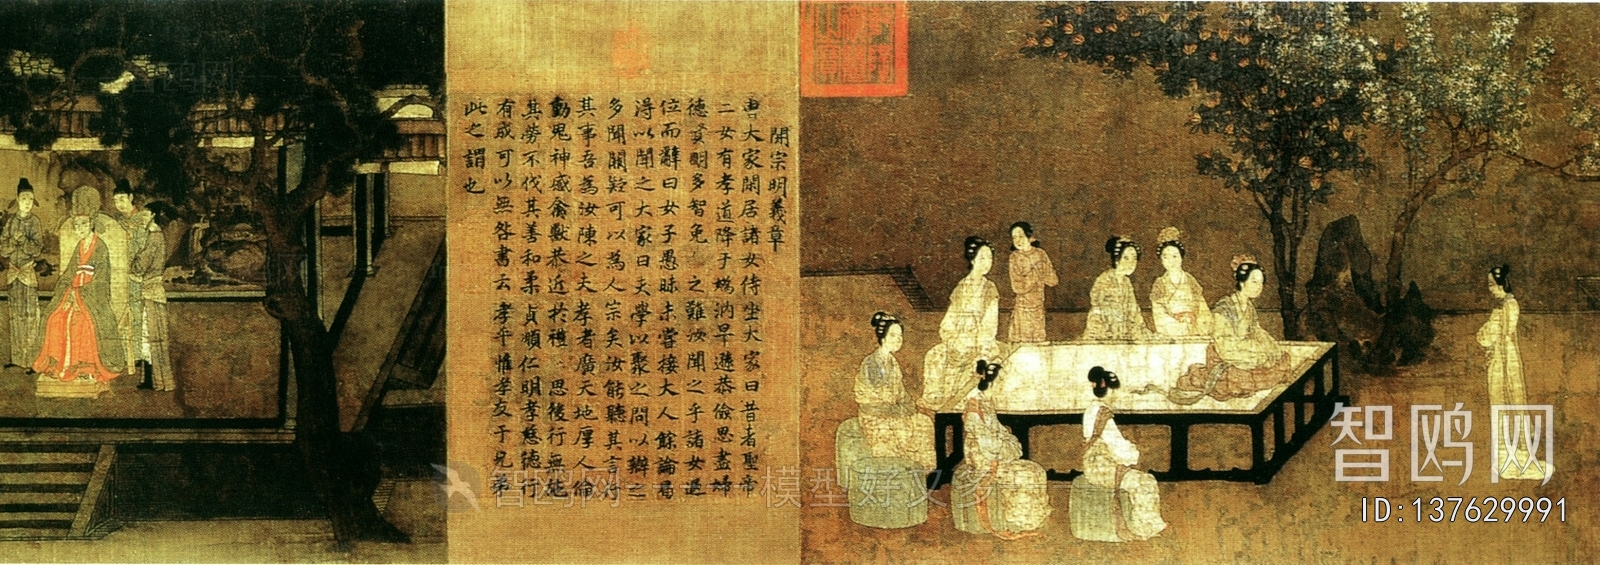 開宗明義章
曹大家閑居諸女侍坐大家曰昔者聖帝
二女有孝道降于媯汭卑遜恭儉思盡婦
德賢明多智免 之難汝聞之乎諸女退
位而辭曰女子愚昧未嘗接大人餘論曷
得以聞之大家曰夫學以聚之問以辯之
多聞闕疑可以為人宗矣汝能聽其言行
其事吾為汝陳之夫孝者廣天地厚人倫
動鬼神感禽獸恭近於禮 思後行無施
其勞不伐其善和柔貞順仁明孝慈德行
有成可以無咎書云孝乎惟孝友于兄弟
此之謂也
智鸥网
模型好又多
智鸥网
ID:137629991